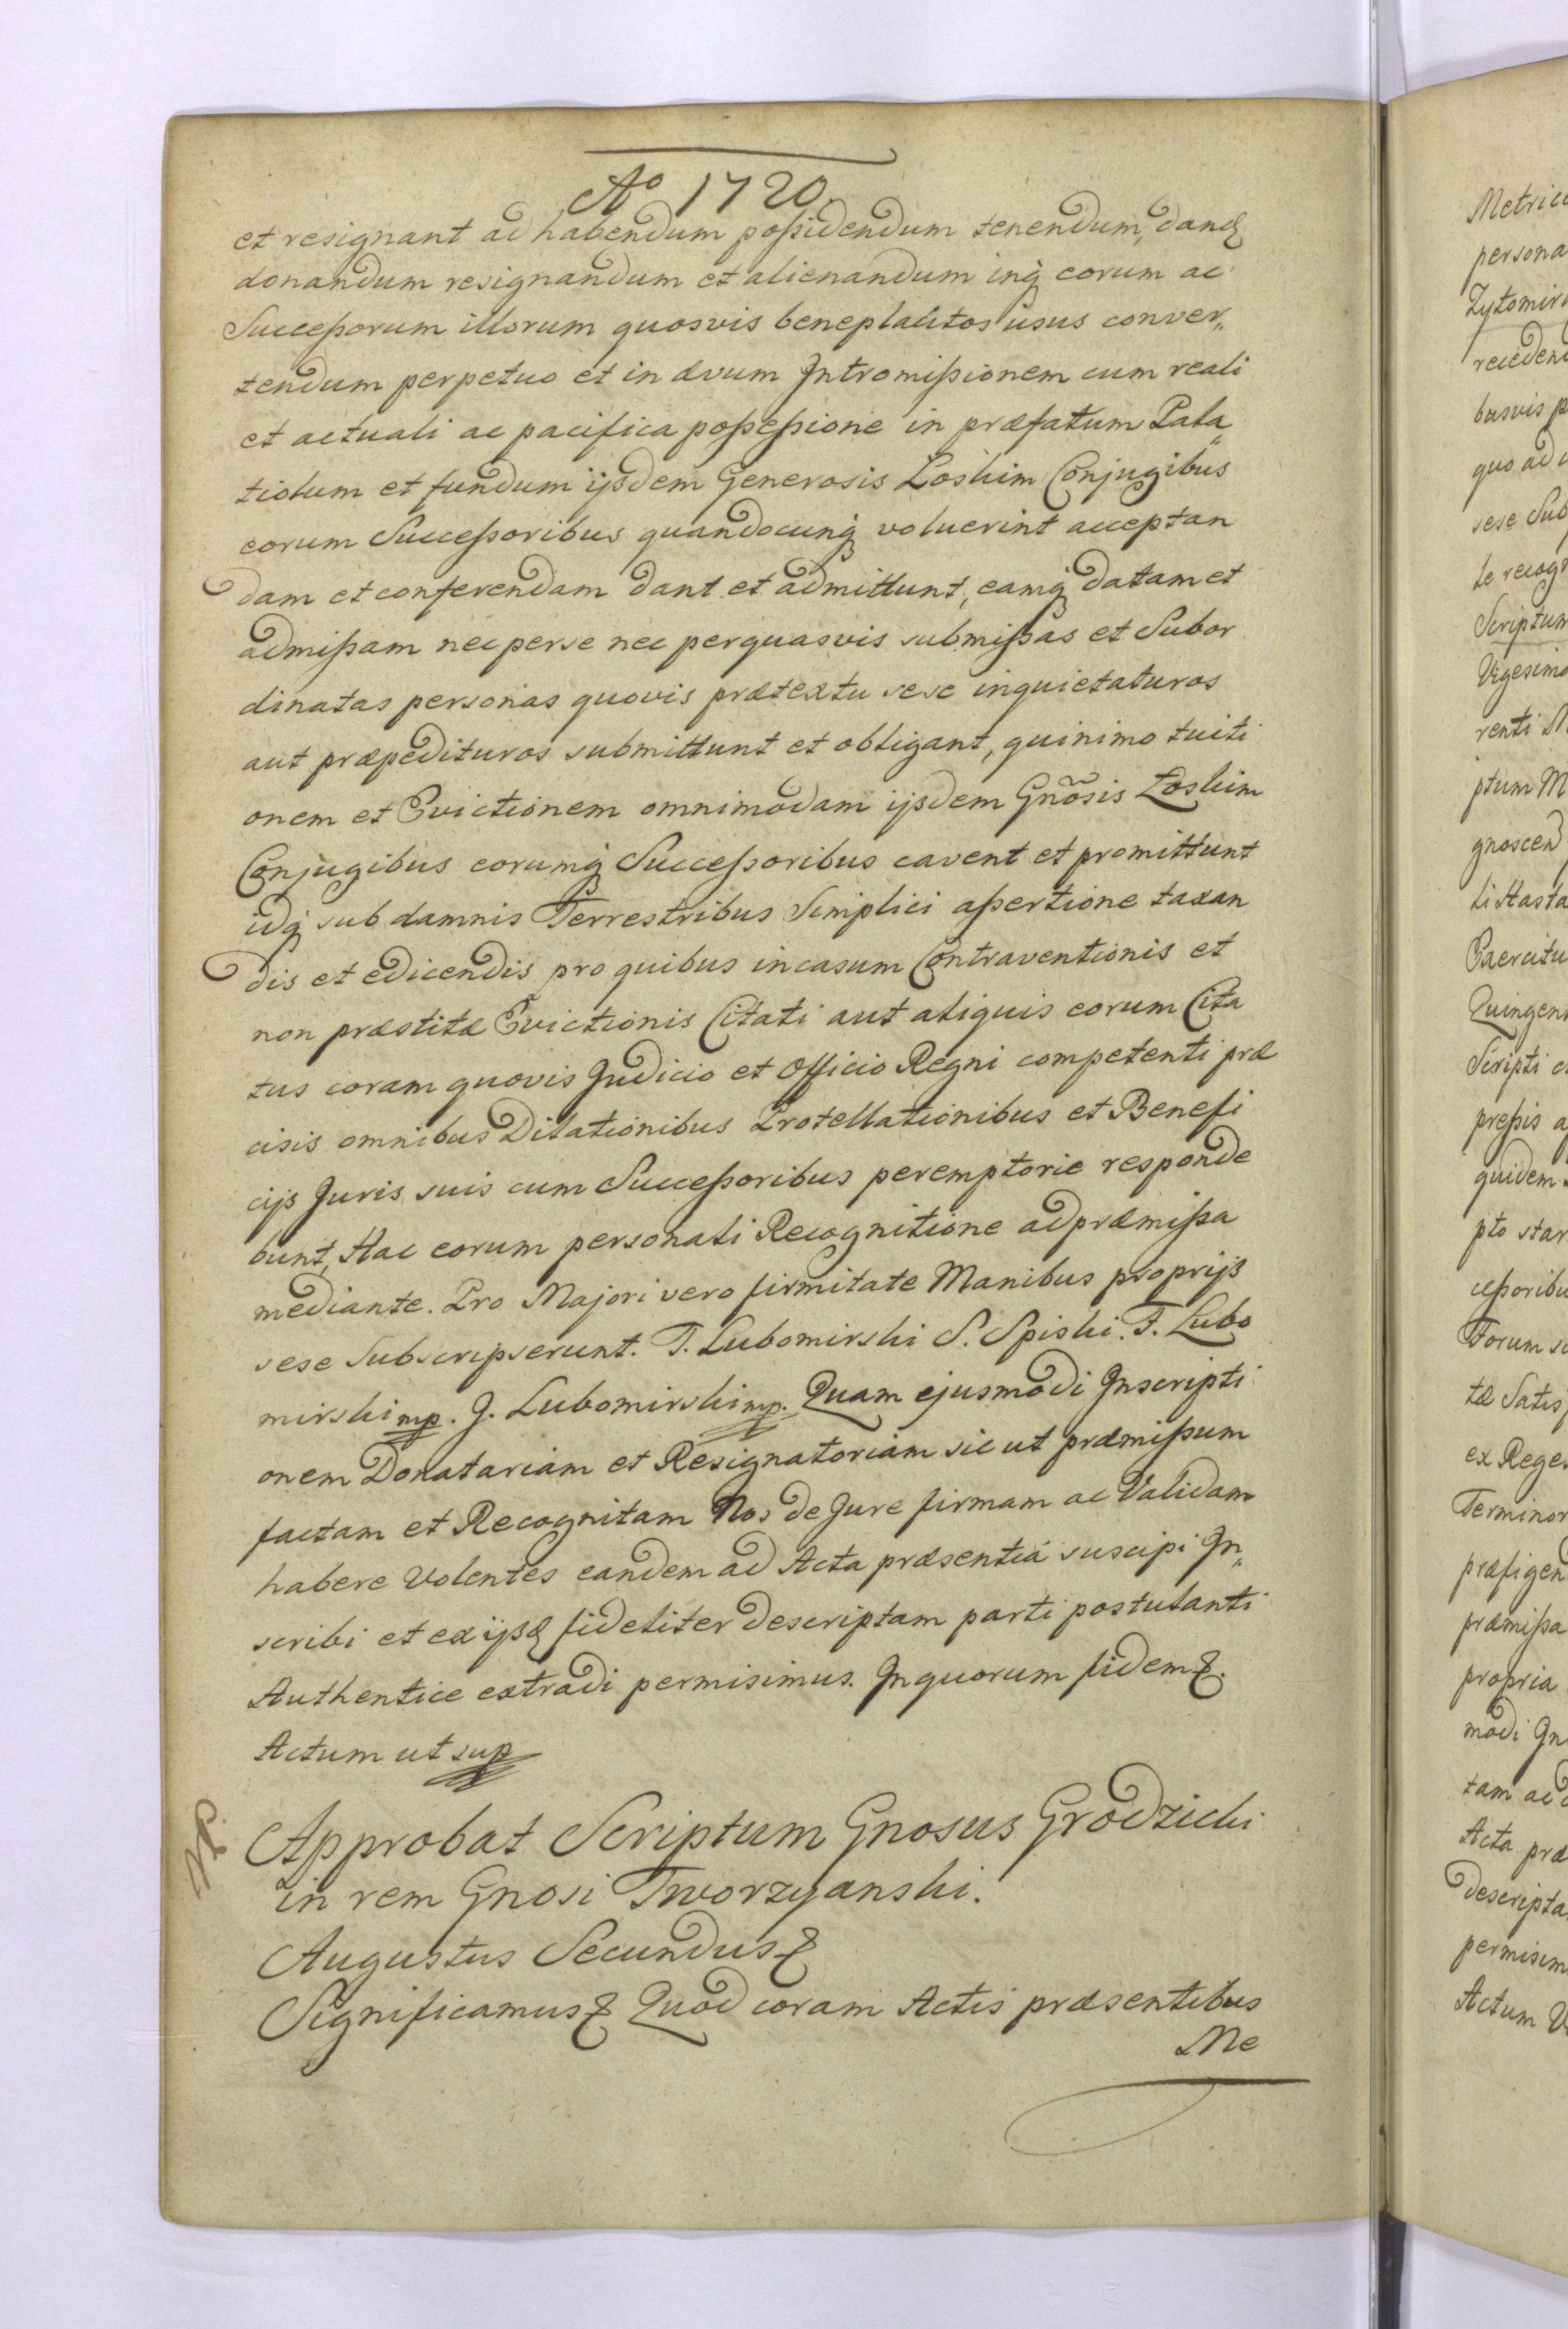 Aº 1720.
et resignant ad habendum possidendum tenendum, dand
donandum resignandum et alienandum inq eorum ac
Successorum illorum quosvis beneplacitos usus conver„
tendum perpetuo et in ævum Intromissionem cum reali
et actuali ac pacifica possessione in præfatum Pala„
tiolum et fundum ijsdem Generosis Loskim Conjugibus
eorum Successoribus quandocunq voluerint acceptan
dam et conferendam dant et admittunt, eamq datam et
admissam nec perse nec perquasvis submissas et Subor
dinatas personas quovis prætextu sese inquietaturos
aut præpedituros submittunt et obligant, quinimo tuiti
onem et Evictionem omnimodam ijsdem Gnõsis Loskim
Conjugibus eorumq Successoribus cavent et promittunt
idq sub damnis Terrestribus Simplici assertione taxan
dis et edicendis pro quibus incasum Contraventionis et
non præstitæ Evictionis Citati aut aliquis eorum Cita
tus coram quovis Judicio et Officio Regni competenti præ
cisis omnibus Dilationibus Protellationibus et Benefi
cijs Juris suis cum Successoribus peremptorie responde
bunt, Hac eorum personali Recognitione ad præmissa
mediante. Pro Majori vero firmitate Manibus proprijs
sese Subscripserunt. T. Lubomirski S. Spiski. F. Lubo
mirski mp. J. Lubomirski mp. Quam ejusmodi Inscripti
onem Donatariam et Resignatoriam sic ut præmissum
factam et Recognitam Nos de Jure firmam ac Validam
habere Volentes eandem ad Acta præsentia suscipi In„
scribi et ex ijsd fideliter descriptam parti postulanti
Authentice extradi permisimus. In quorum fidem &.
Actum ut sup
Approbat Scriptum Gnosus Grodzicki
in rem Gnosi Tworzyanski.
Augustus Secundus &
Significamus & Quod coram Actis præsentibus
Me
Metric
persona
Zytomir
recedend
busvis p
quo ad
sese Sub
le recog
Scriptum
Vigesimo
renti
ptum M
gnoscen
li Hasta
Exercitu
Quingen
Scripti
pressis a
quidem
pto star
cessoribu
Forum
tæ Satis
ex Reges
Terminor
præfigen
præmissa
propria
modi In
tam ac
Acta præ
descripta
permisim
Actum